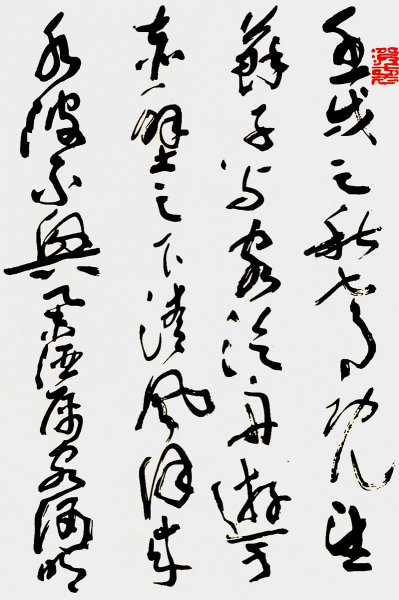 壬戌之秋七月既望
蘇子与客泛舟遊于
赤壁之下清風徐来
水波不興舉酒屬客誦明